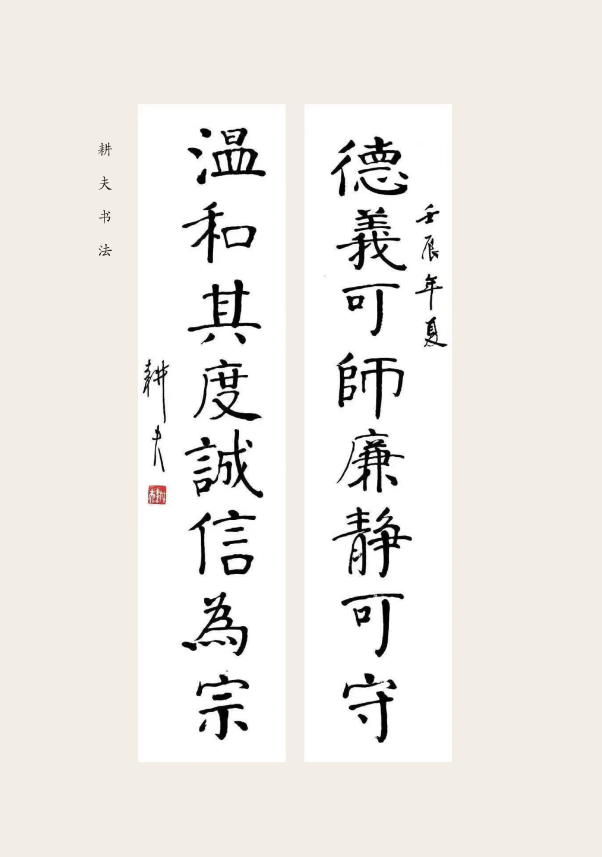 壬辰年夏
德義可師廉靜可守
温和其度誠信為宗
耕夫
耕夫书法